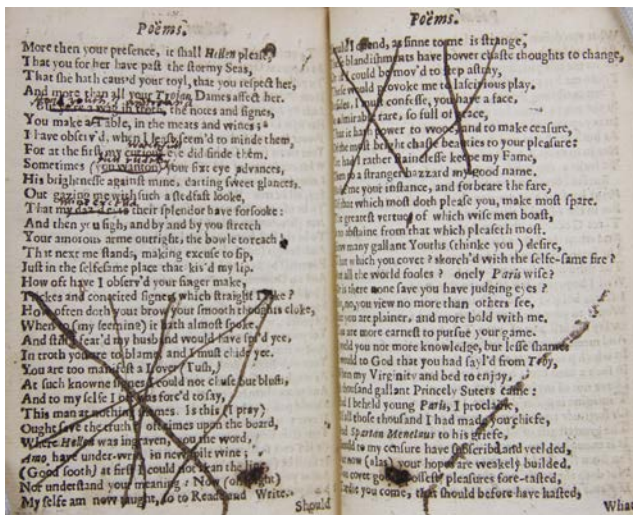 Poëms.
More then your presence, it shall Hellen please,
That you for her have past the stormy Seas,
That she hath caus'd your toyl, that you respect her,
And more than all your Trojan Dames affect her.
the notes and signes,
You make a Table, in the meats and wines;
I have observ'd, when I least seem'd to minde them,
For at the first my curious eye did finde them.
Sometimes (you wanton) your fixt eye advances,
His brightnesse against mine, darting sweet glances,
Out gazing me with such a stedfast looke,
That my their splendor have forsooke:
And then you sigh, and by and by you stretch
Your amorous arme outright, the bowle to reach
That next me stands, making excuse to sip,
Just in the selfesame place that kis'd my lip.
How oft have I observ'd your finger make,
Trickes and conceited signes, which straight I take?
How often doth your brow your smooth thoughts cloke,
When to (my seeming) it hath almost spoke,
And still fear'd my husband would have spi'd yee,
In troth you are to blame, and I must chide yee.
You are too manifest a Lover (Tush,)
At such knowne signes I could not chuse but blush,
And to my selfe I oft was forc'd to say,
This man at nothing shames. Is this (I pray)
Ought save the truth? oftimes upon the board,
Where Hellen was ingraven, you the word,
Amo have under-writ, in new spilt wine;
(Good sooth) at first I could not skan the line,
Nor understand your meaning: Now (oh spight)
My selfe am now taught, so to Reade and Write.
Should
Poëms.
Should I offend, as sinne to me is strange,
These blandishments have power chaste thoughts to change,
Or if I could be mov'd to step astray,
These would provoke me to lascivious play.
Besides, I must confesse, you have a face,
admirable rare, so full of grace,
That it hath power to wooe, and to make ceasure,
Of the most bright chaste beauties to your pleasure:
Yet had I rather stainlesse keepe my Fame,
Then to a stranger hazzard my good name.
me your instance, and forbeare the fare,
that which most doth please you, make most spare.
The greatest vertue of which wise men boast,
to abstaine from that which pleaseth most.
How many gallant Youths (thinke you) desire,
That which you covet? skorch'd with the selfe-same fire?
Are all the world fooles? onely Paris wise?
Or is there none save you have judging eyes?
No, no, you view no more than others see,
you are plainer, and more bold with me.
You are more earnest to pursue your game.
you not more knowledge, but lesse shame
would to God that you had sayl'd from Troy,
When my Virginity and bed to enjoy,
A thousand gallant Princely Suters came:
Had I beheld young Paris, I proclaime,
Of all those thousand I had made you chiefe,
And Spartan Menelaus to his griefe,
Should to my censure have subscrib'd and yeelded,
But now (alas) your hopes are weakely builded.
You covet goods possest, pleasures fore-tasted,
you come, that should before have hasted,
What